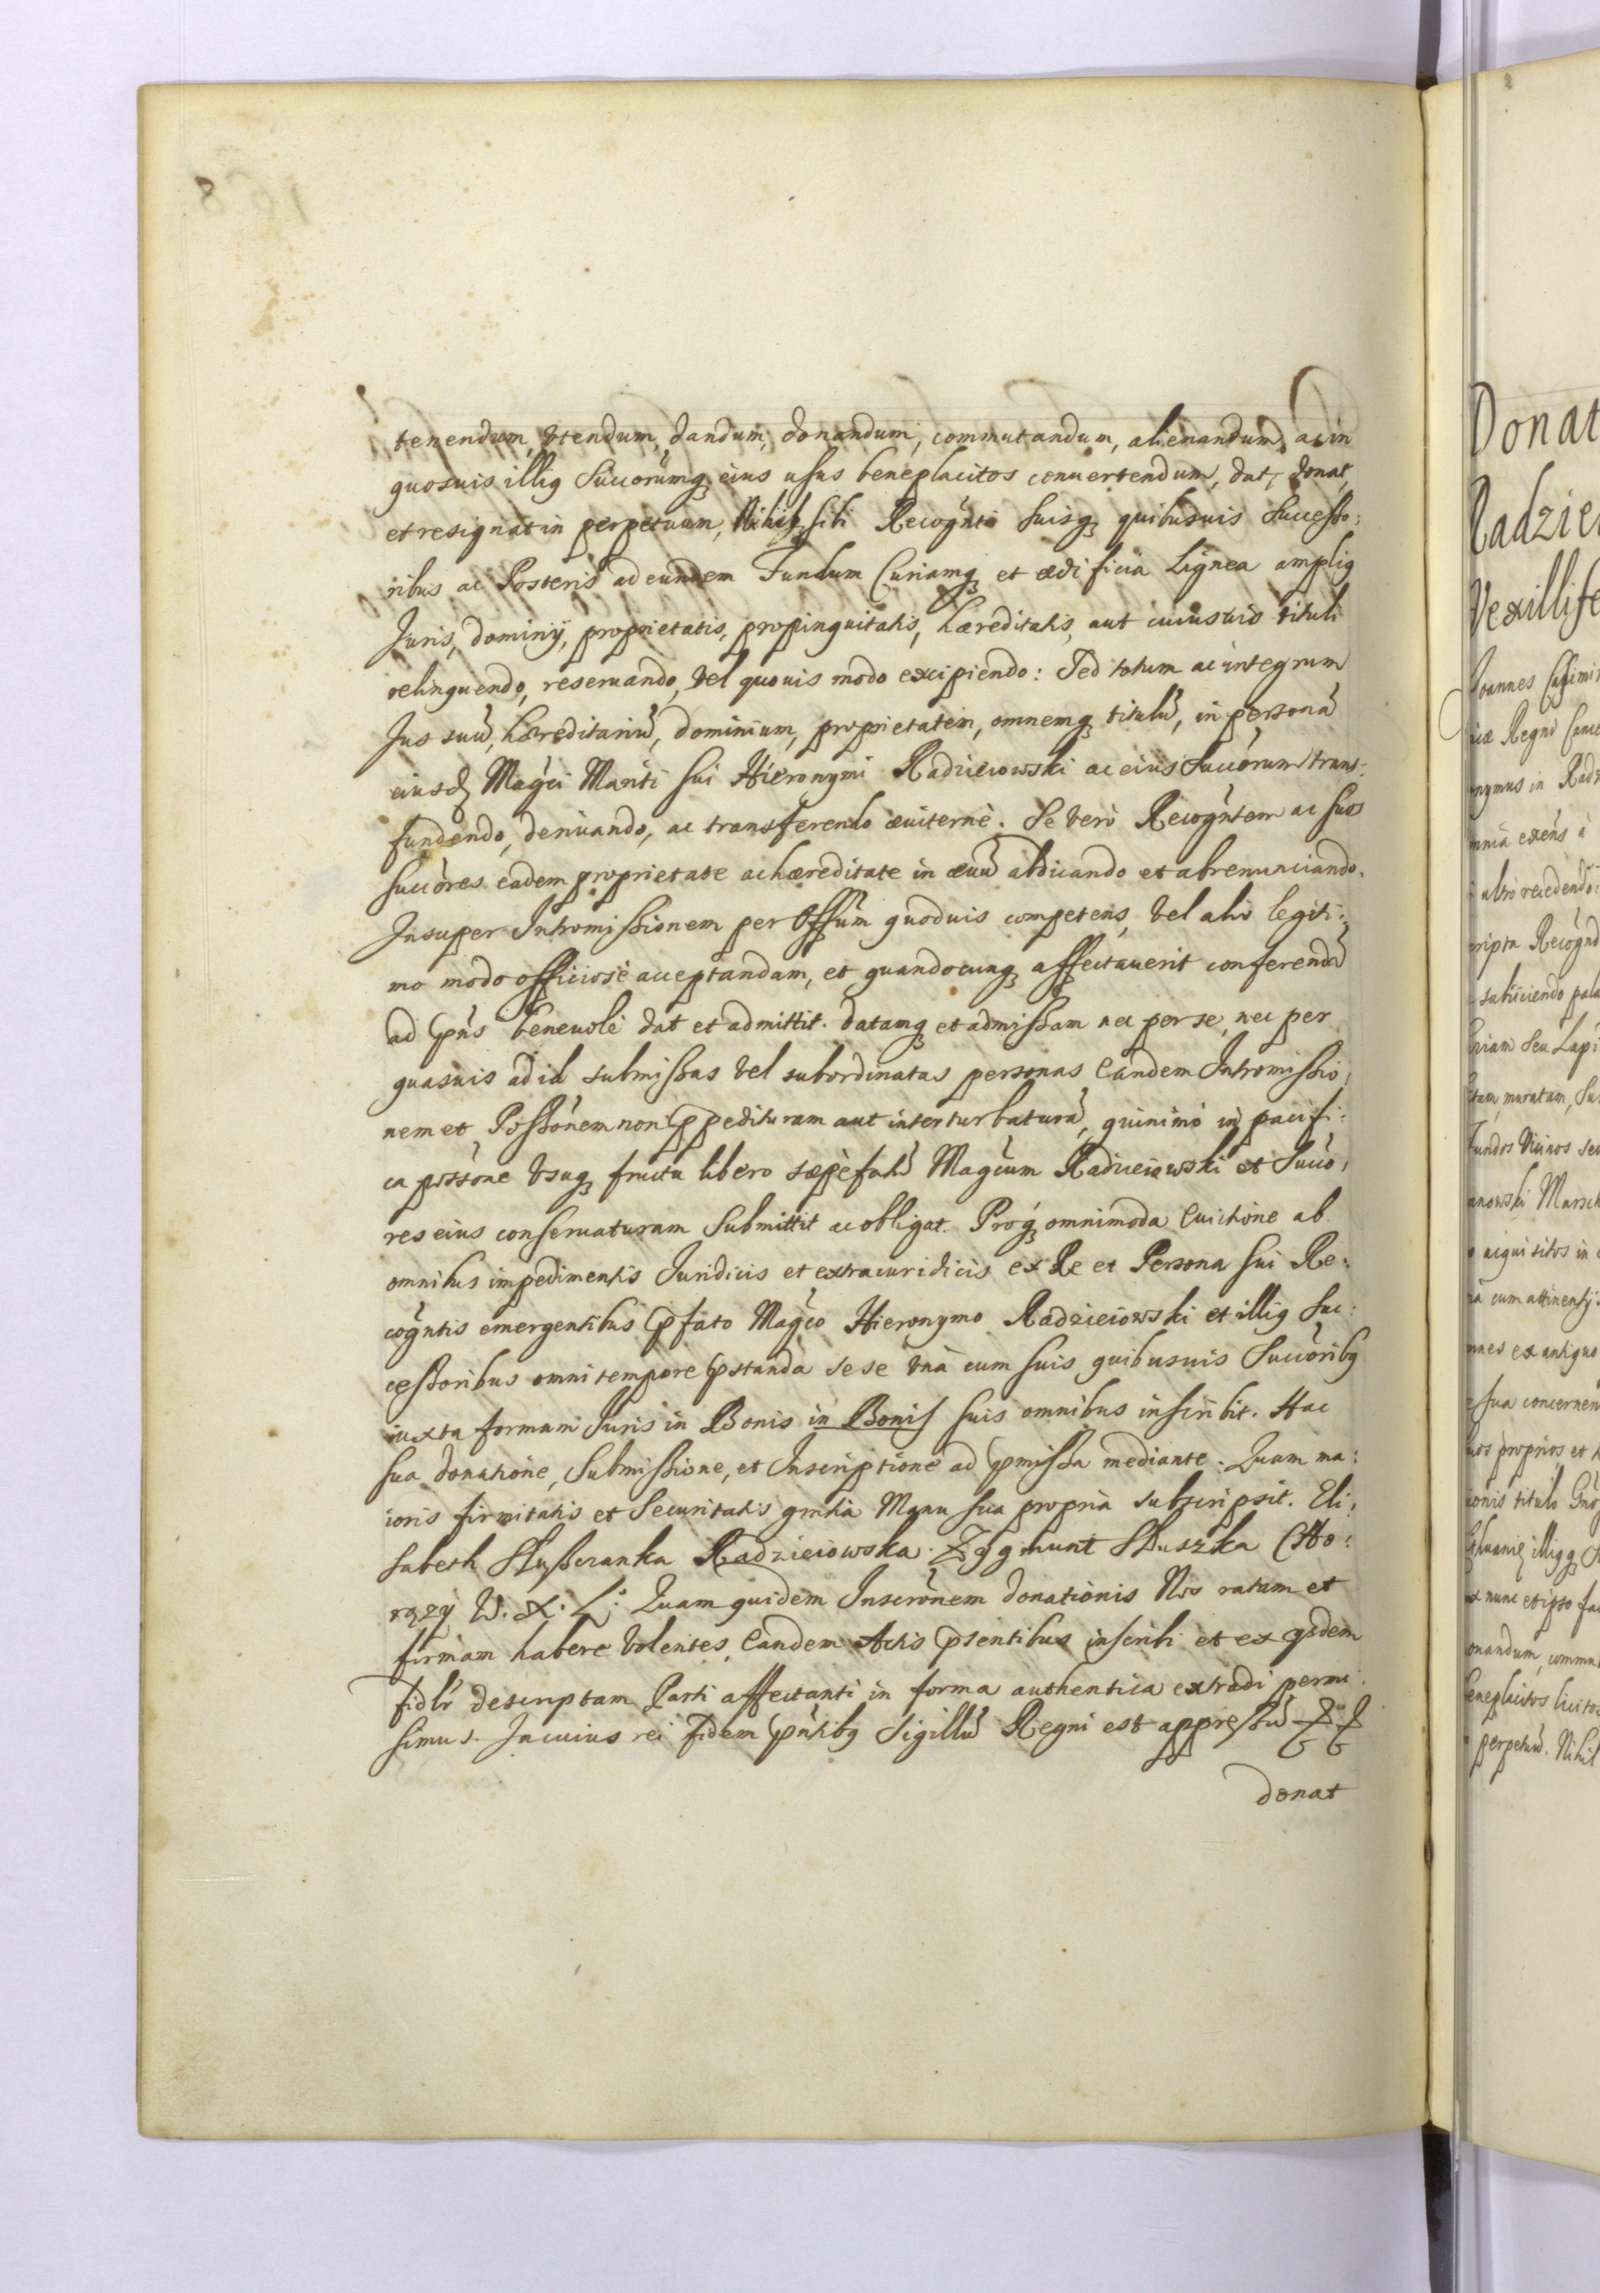 tenendum, vtendum, dandum, donandum, commutandum, alienandum, ac in
quosuis illiq Succorumq eius usus beneplacitos conuertendum, dat, donat,
et resignat in perpetuum, Nihil sibi Recognti suisq quibusuis Successo:
ribus ac Posteris ad eundem Fundum Curiamq et ædificia Lignea ampliq
Juris, dominÿ, proprietatis, propinquitatis, hæreditatis, aut cuiusuis tituli
relinquendo, reseruando, vel quouis modo excipiendo: Sed totum ac integrum
Jus suũ, hæreditariũ, dominium, proprietatem, omnemq titulũ, in personã
eiusd Magci Mariti sui Hieronymi Radzieiowski ac eius Succorum trans:
fundendo, deriuando, ac transferendo æuiternè. Se verò Recogntem ac suos
succores eadem proprietate ac hæreditate in æuũ abdicando et abrenunciando.
Insuper Intromissionem per Offũm quoduis competens, vel alio legiti:
mo modo officiosè acceptandam, et quandocunq affectauerit conferendã
ad pñs beneuolè dat et admittit. datamq et admissam nec per se, nec per
quasuis ad id submissas vel subordinatas personas Eandem Intromissio:
nem et Possonem non ppedituram aut interturbaturã, quinimò in pacifi:
ca possone vsuq fructu libero sæpèfatũ Magcum Radzieiowski et Succo:
res eius conseruaturam Submittit ac obligat. Proq omnimoda Euictione ab
omnibus impedimentis Juridicis et extraiuridicis ex Re et Persona sui Re:
cogntis emergentibus pfato Magco Hieronymo Radzieiowski et illiq suc:
cessoribus omni tempore pstanda sese vnà cum suis quibusuis Succoribq
iuxta formam Juris in Bonis in Bonis suis omnibus inscribit. Hac
sua donatione, Submissione, et Inscriptione ad pmissa mediante. Quam ma:
ioris firmitatis et Securitatis grãtia Manu sua propria subscripsit. Eli:
sabeth Słuszczanka Radzieiowska. Zygmunt Słuszka Cho:
rązÿ W. X. L: Quam quidem Inscronem donationis Nos ratam et
firmam habere volentes, Eandem Actis psentibus inscribi et ex ysdem
fidlr descriptam Parti affectanti in forma authentica extradi permi:
simus. In cuius rei fidem pñtibq Sigillũ Regni est appressũ
donat
Donat
Radzie
Vexillife
Joannes Casimir
niæ Regni Canc
onymus in Radz
mnia exẽns à
ultrò recedendo
cripta Recognd
satisiciendo pala
uriam seu Lapi
ctam, muratam, Su
Fundos Vicinos seu
anowski Marsch
acquisitos in
cum attinentÿ
mnes ex antiquo
sua concernen
uos proprios, et
ionis titulo
nunc et ipso fac
onandum, commu
eneplacitos licitos
perpetuũ. Nihil